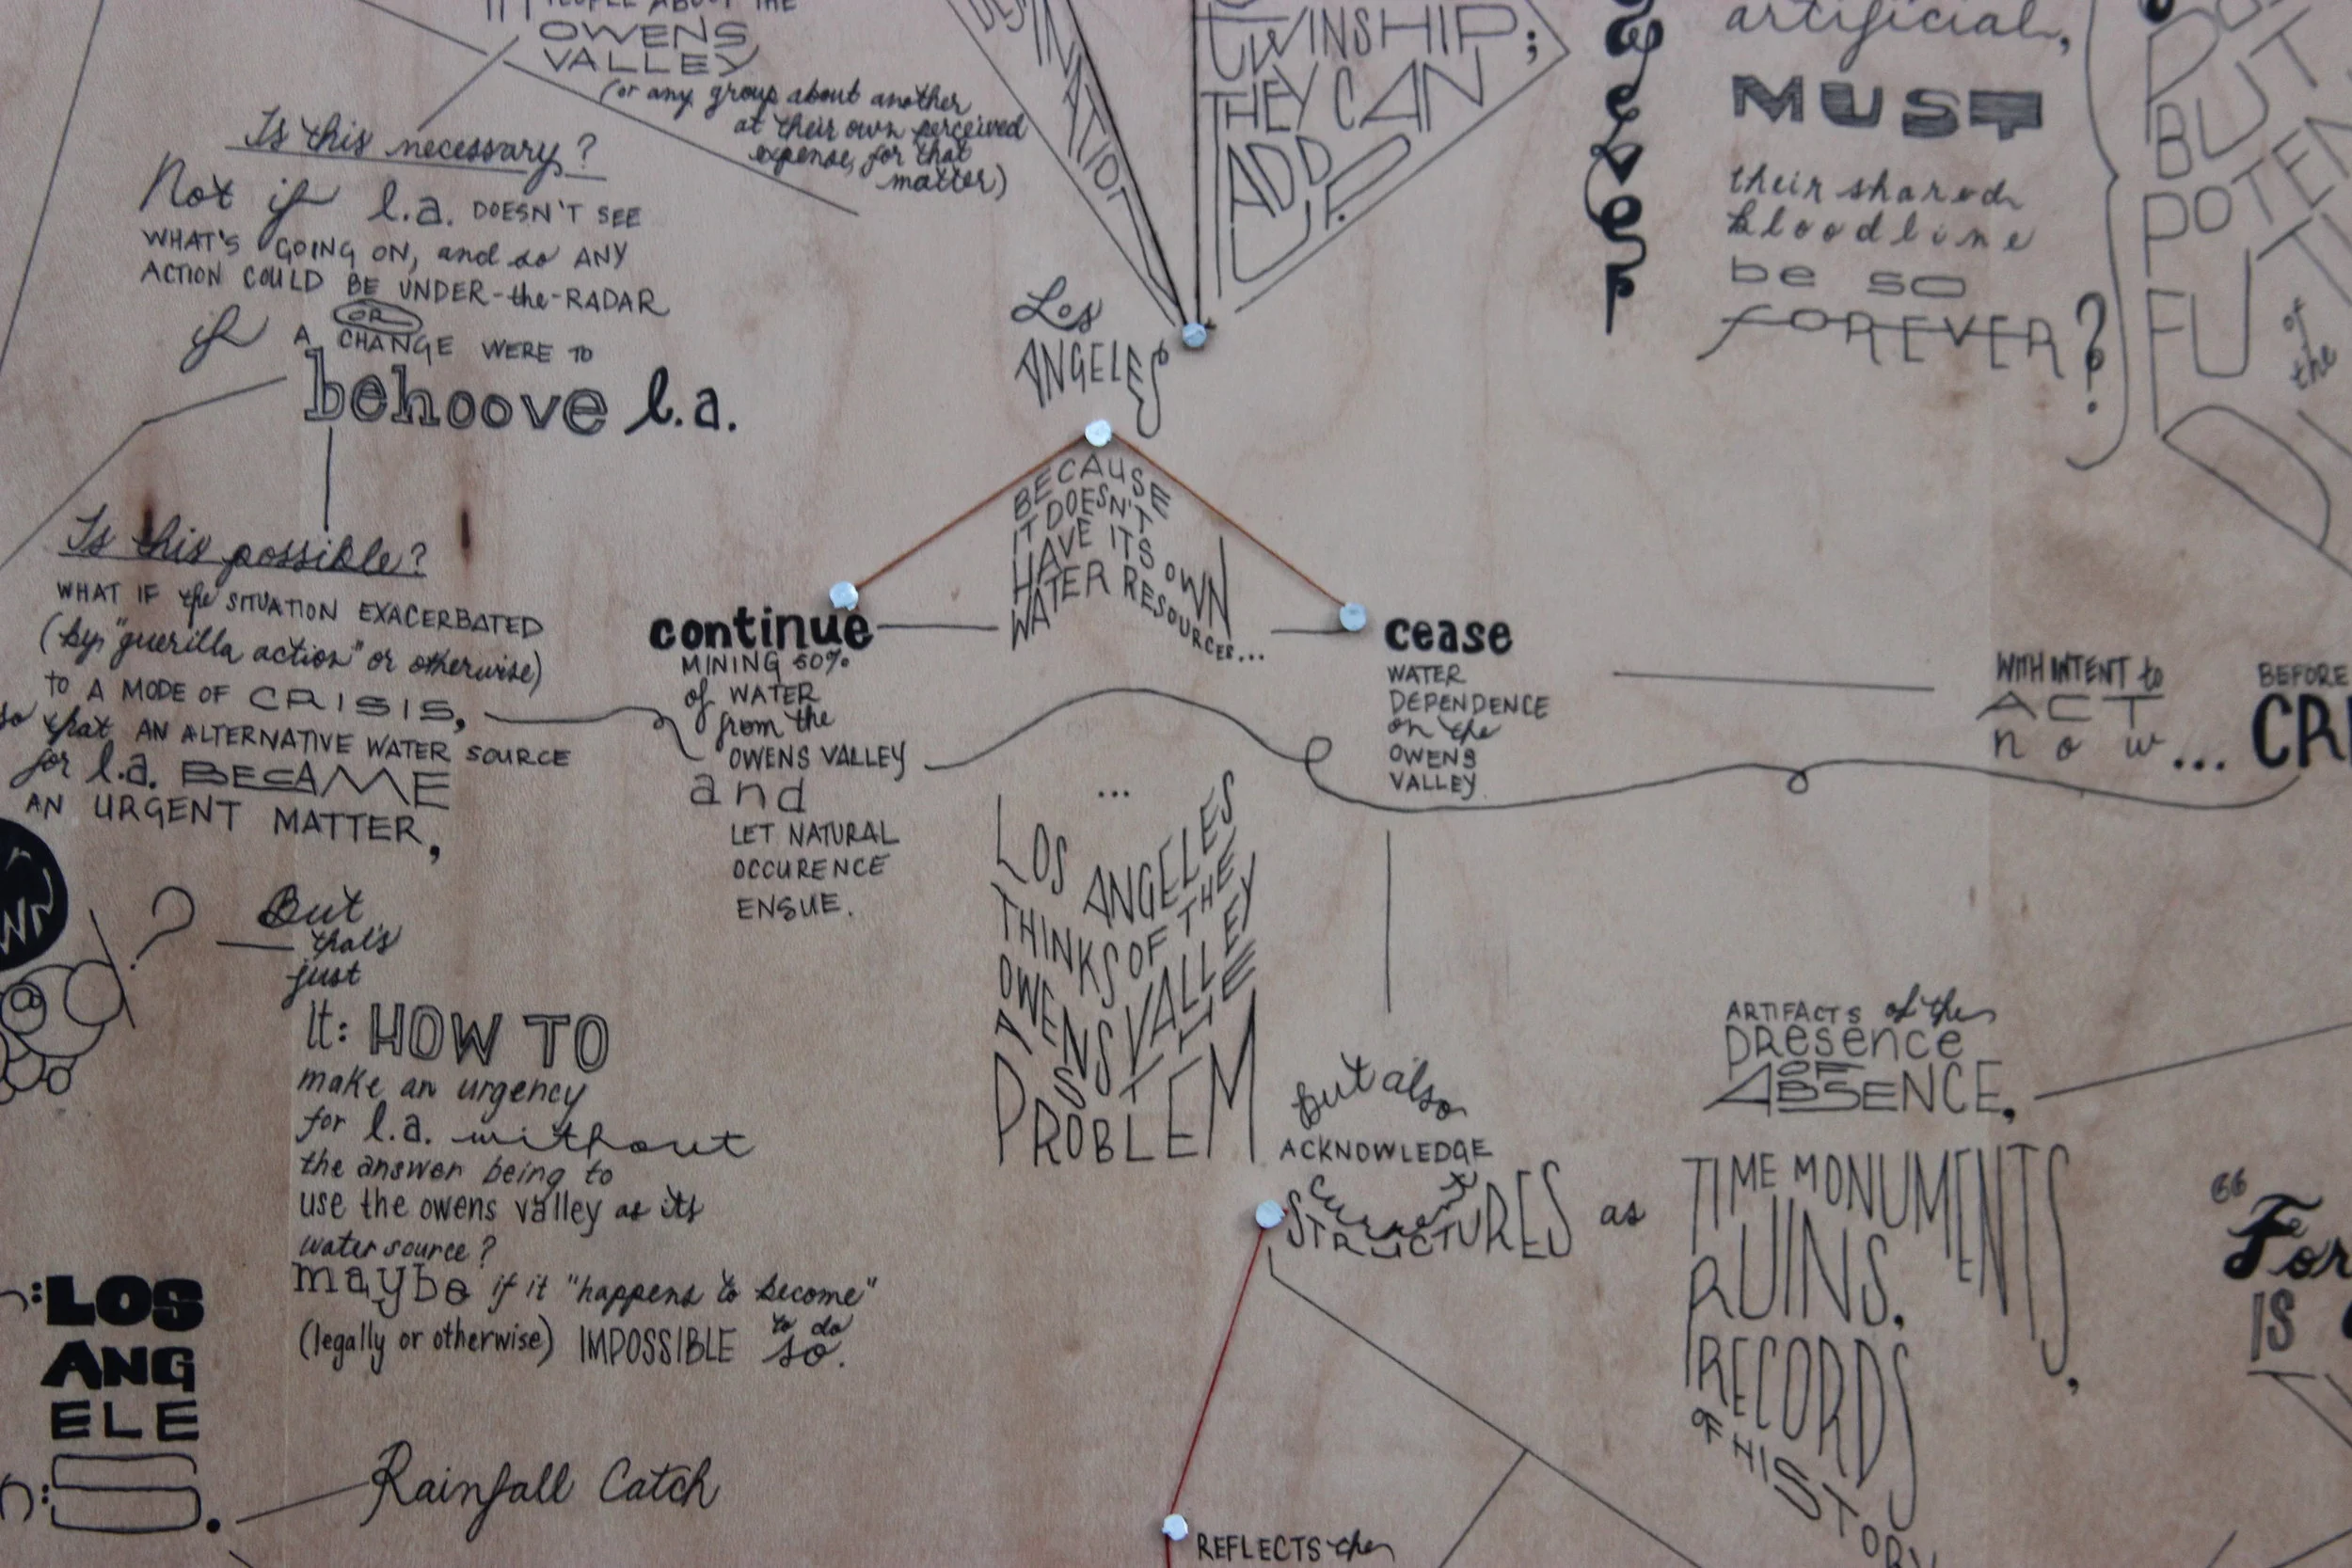 PEOPLE ABOUT THE
OWENS
VALLEY
(or any group about another
at their own perceived
expense, for that
matter)
Is this necessary?
Not if l.a. DOESN'T SEE
WHAT'S GOING ON, and so ANY
ACTION COULD BE UNDER-the-RADAR
OR
if A CHANGE WERE TO
behoove l.a.
Is this possible?
WHAT IF the SITUATION EXACERBATED
(by "guerilla action" or otherwise)
TO A MODE OF CRISIS,
so that AN ALTERNATIVE WATER SOURCE
for l.a. BECAME
AN URGENT MATTER,
?
But
that's
just
It: HOW TO
make an urgency
for l.a. without
the answer being to
use the owens valley as its
water source?
maybe if it "happens to become"
(legally or otherwise) IMPOSSIBLE to do
so.
LOS
ANG
ELE
S.
Rainfall Catch
TWINSHIP;
THEY CAN
ADD
UP.
LOS
ANGELES
BECAUSE
IT DOESN'T
HAVE ITS OWN
WATER RESOURCES...
continue
MINING 60%
of WATER
from the
OWENS VALLEY
and
LET NATURAL
OCCURENCE
ENSUE.
cease
WATER
DEPENDENCE
on the
OWENS
VALLEY
...
LOS ANGELES
THINKS OF THE
OWENS VALLEY
AS ITS
PROBLEM
but also
ACKNOWLEDGE
current
STRUCTURES as
ARTIFACTS of the
PResence
OF
ABSENCE,
TIME MONUMENTS,
RUINS,
RECORDS
OF HISTORY
REFLECTS the
WITH INTENT to
ACT
now...
BEFORE
CRI
artificial,
MUST
their shared
bloodline
be so
FOREVER?
BUT
POTEN
FU
of
the
"For
IS